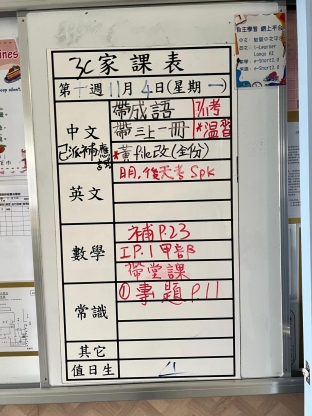 3C家課表
第十週11月4日(星期一)
中文
帶成語
帶三上一冊
*溫習
已派補應
*黃file改(全份)
英文
明,後天考Spk
數學
補P.23
IP.1甲部
帶堂課
常識
①專題P.11
其它
值日生
自主學習 網上平台